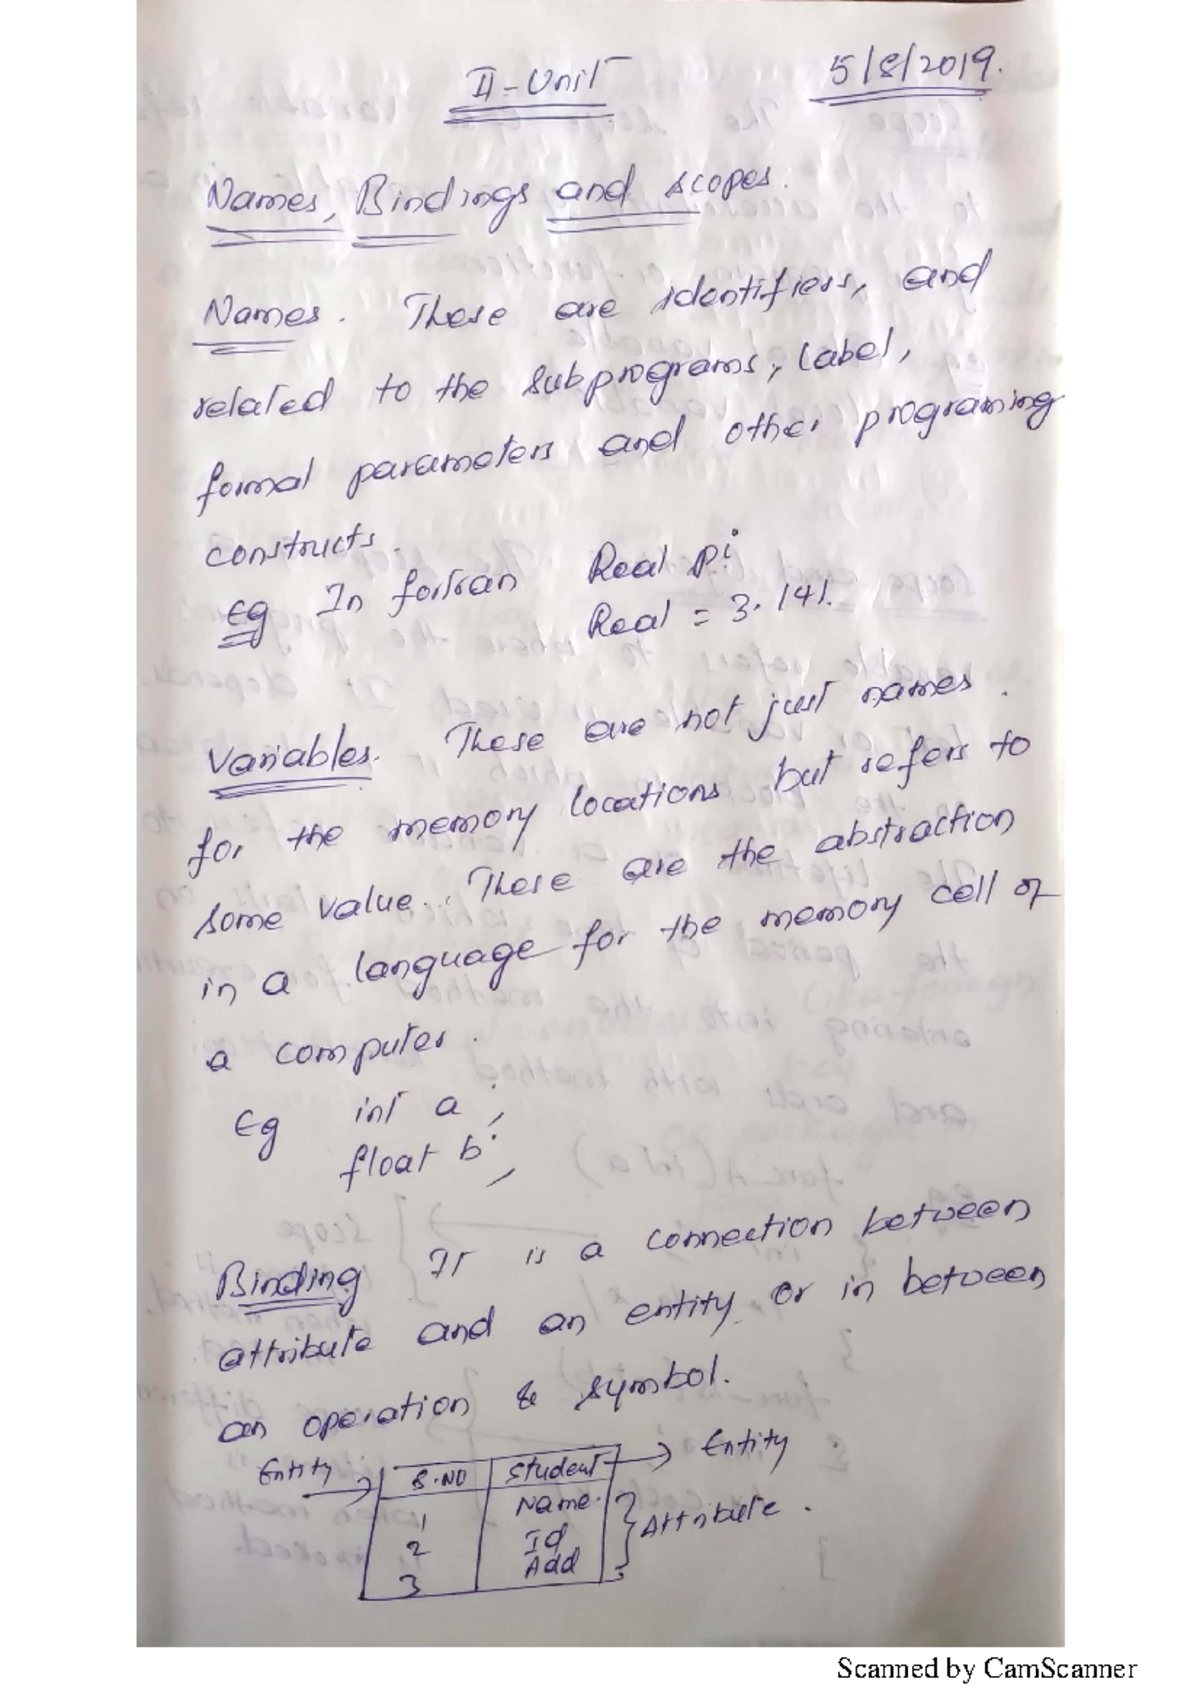 II-Unit 5/8/2019.
Names, Bindings and scopes.
Names. These are identifiers, and
related to the subprograms, Label,
formal parameters and other programing
constructs.
Eg In fortran Real pi
Real = 3.141.
Variables. These are not just names.
for the memory locations but refers to
some value. These are the abstraction
in a language for the memory cell of
a computer.
Eg int a;
float b;
Binding It is a connection between
attribute and an entity or in between
an operation & symbol.
Entity S.NO Student Entity
1 Name.
2 Id Attribute.
3 Add
Scanned by CamScanner